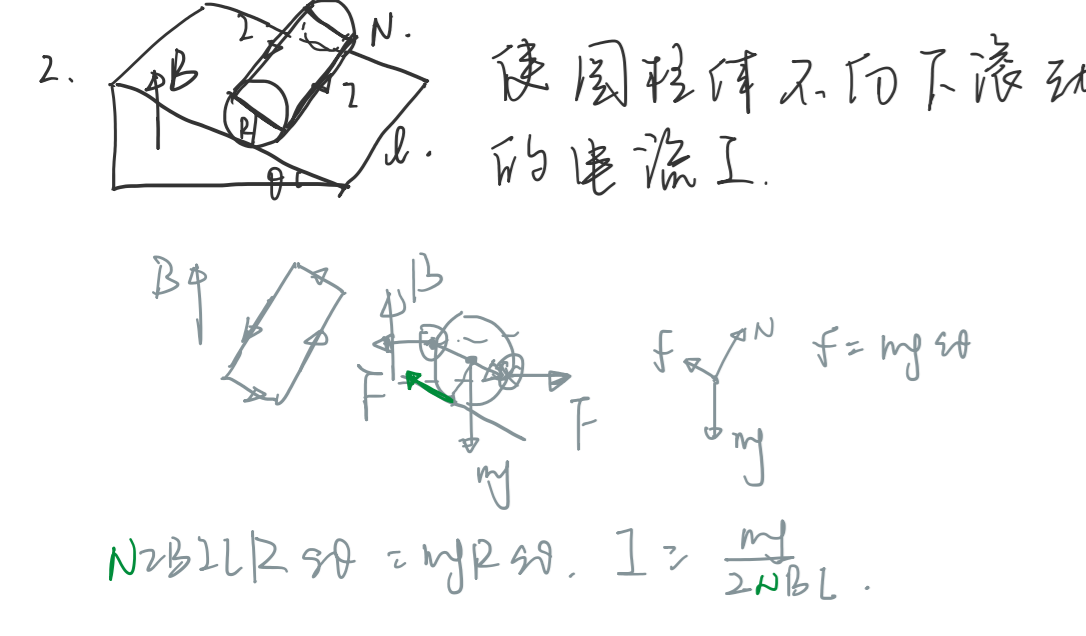 2. B 2 N. R 2 l. θ
使圆柱体不向下滚动
的电流 I.
B B F F mg
f N mg f = mg sinθ
N2BILR sinθ = mgR sinθ. I = mg / 2NBL.